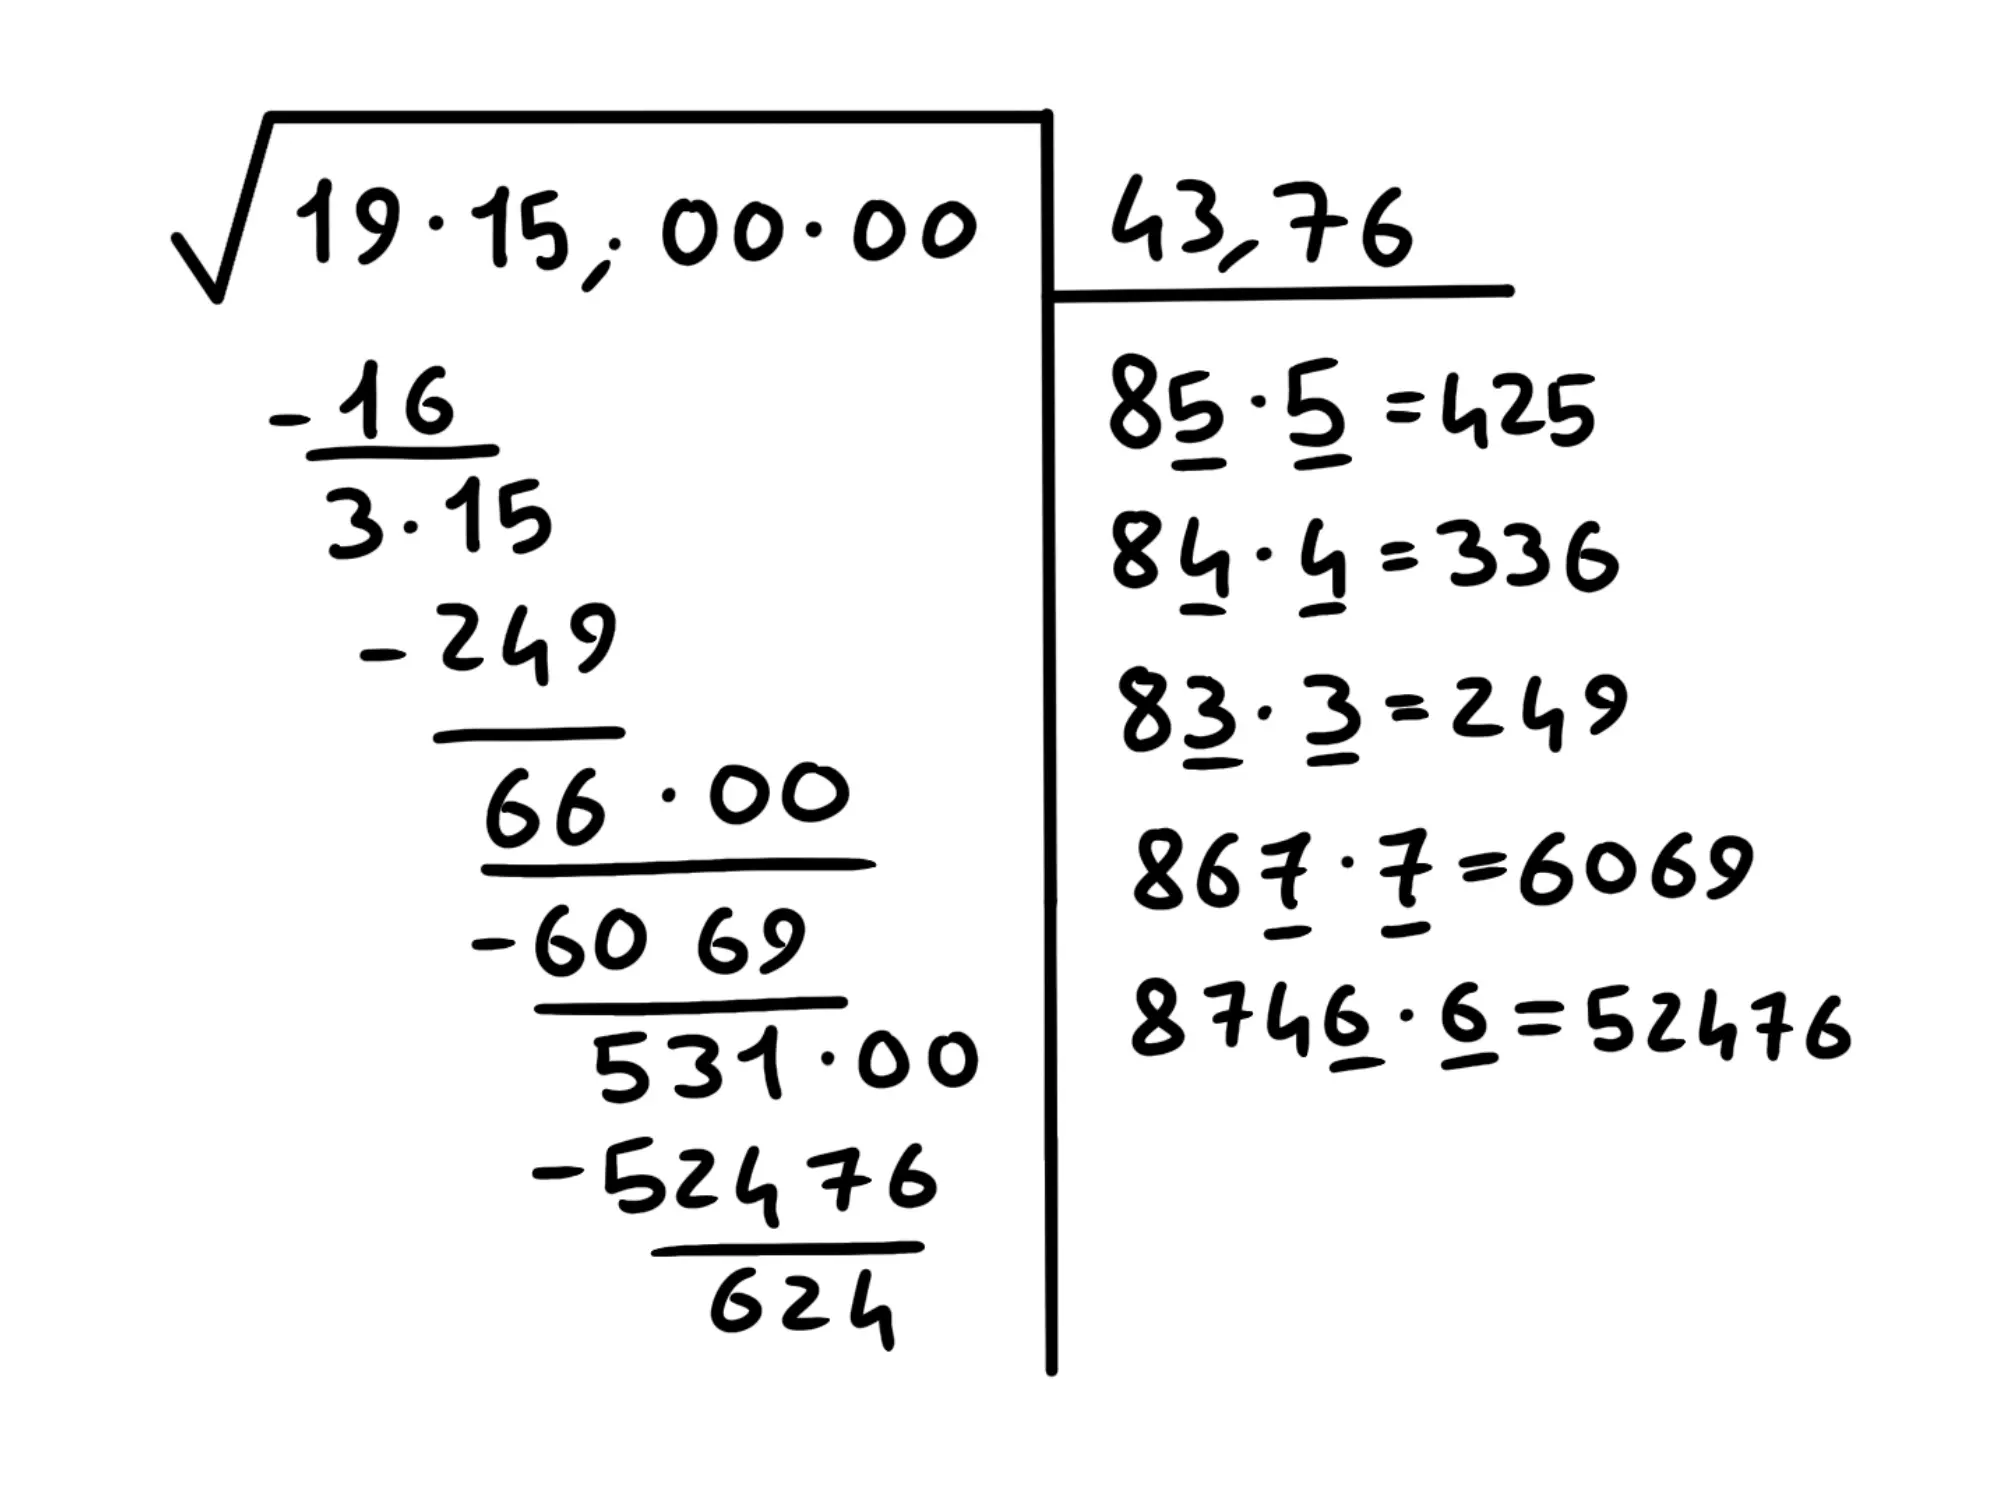 √19·15,00·00 43,76
-16
3·15
-249
66·00
-60 69
531·00
-52476
624
85·5=425
84·4=336
83·3=249
867·7=6069
8746·6=52476